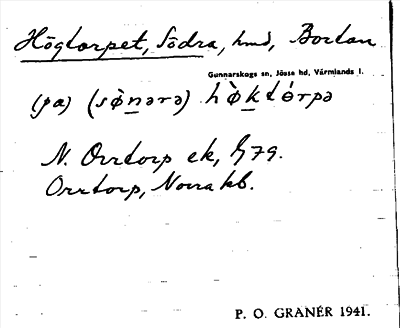 Högtorpet, Södra, hmd, Bortan
Gunnarskogs sn, Jösse hd, Värmlands l.
(pa) (sø̀nərə) hø̀którpə
N. Orrtorp ek, G 79.
Orrtorp, Norra kb.
P. O. GRANÉR 1941.